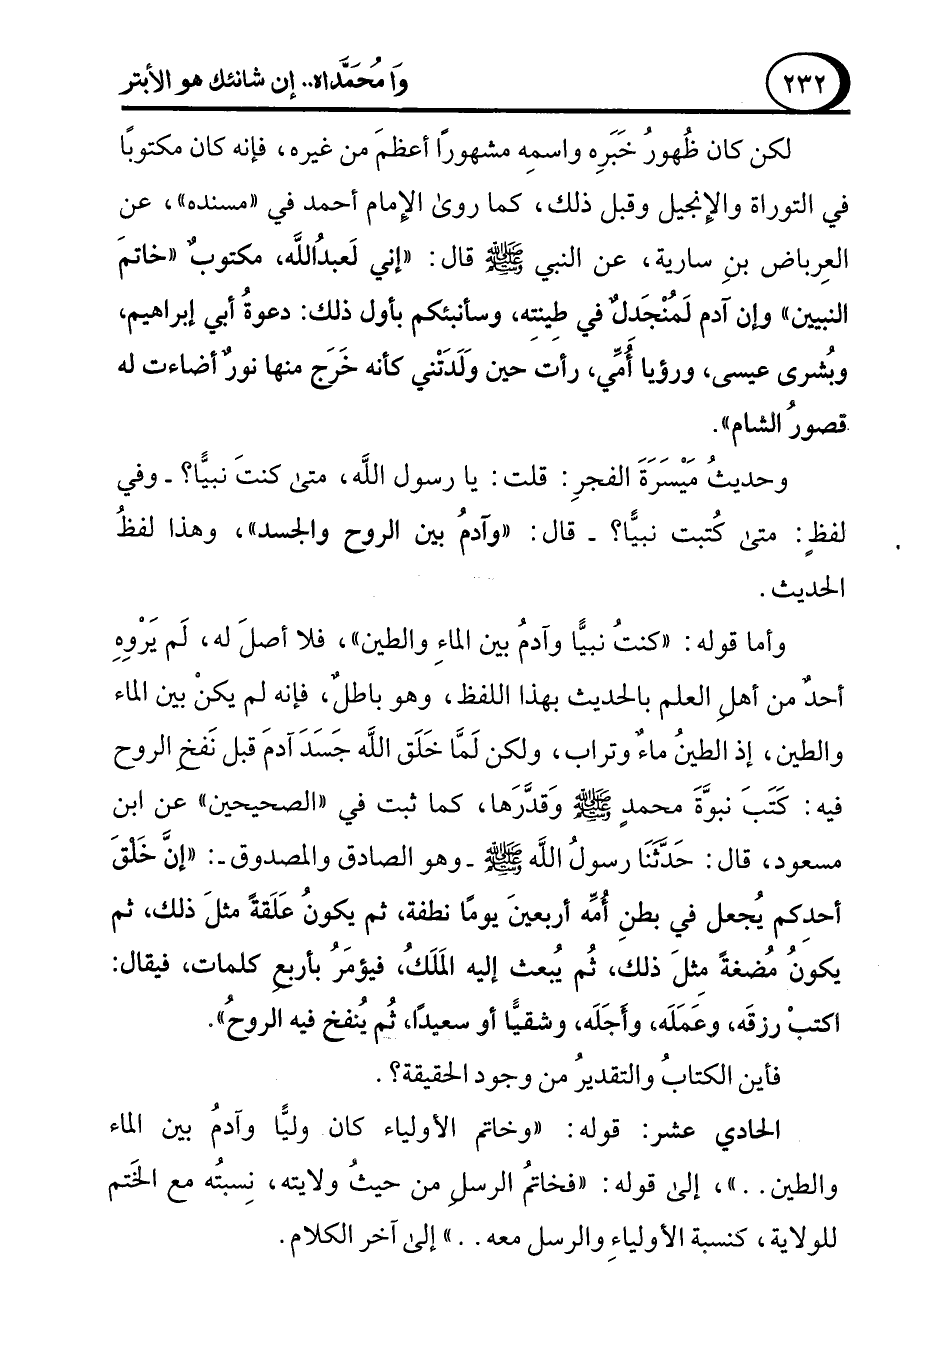 ٢٣٢
وَا مُحَمَّدَاه.. إن شانئك هو الأبتر
لكن كان ظُهورُ خَبَرِه واسمِه مشهورًا أعظمَ من غيره، فإنه كان مكتوبًا
في التوراة والإنجيل وقبل ذلك، كما روىٰ الإمام أحمد في «مسنده»، عن
العِرباض بنِ سارية، عن النبي ﷺ قال: «إني لَعبدُالله، مكتوبٌ «خاتمَ
النبيين» وإن آدم لَمُنْجَدلٌ في طِينتِه، وسأنبئكم بأول ذلك: دعوةُ أبي إبراهيم،
وبُشرى عيسى، ورؤيا أُمِّي، رأت حين ولَدَتْني كأنه خَرَج منها نورٌ أضاءت له
قصورُ الشام».
وحديثُ مَيْسَرَةَ الفجرِ: قلت: يا رسول اللَّه، متىٰ كنتَ نبيًّا؟ ـ وفي
لفظٍ: متىٰ كُتبت نبيًّا؟ ـ قال: «وآدمُ بين الروح والجسد»، وهذا لفظُ
الحديث.
وأما قوله: «كنتُ نبيًّا وآدمُ بين الماءِ والطين»، فلا أصلَ له، لَم يَرْوِهِ
أحدٌ من أهلِ العلم بالحديث بهذا اللفظ، وهو باطلٌ، فإنه لم يكنْ بين الماء
والطين، إذ الطينُ ماءٌ وتراب، ولكن لَمَّا خَلَق اللَّه جَسَدَ آدمَ قبل نَفخِ الروح
فيه: كَتَبَ نبوَّةَ محمدٍ ﷺ وَقدَّرَها، كما ثبت في «الصحيحين» عن ابن
مسعود، قال: حَدَّثَنَا رسولُ اللَّه ﷺ ـ وهو الصادق والمصدوق ـ: «إنَّ خَلْقَ
أحدِكم يُجعل في بطنِ أُمِّه أربعينَ يومًا نطفة، ثم يكونُ عَلَقةً مثلَ ذلك، ثم
يكونُ مُضغةً مثلَ ذلك، ثُم يُبعث إليه المَلَكُ، فيؤمَرُ بأربعِ كلمات، فيقال:
اكتبْ رزقَه، وعَمَلَه، وأَجَلَه، وشقيًّا أو سعيدًا، ثُم يُنفخ فيه الروحُ».
فأين الكتابُ والتقديرُ من وجود الحقيقة؟.
الحادي عشر: قوله: «وخاتم الأولياء كان وليًّا وآدمُ بين الماء
والطين..»، إلىٰ قوله: «فخاتمُ الرسلِ من حيثُ ولايته، نسبتُه مع الخَتم
للولاية، كنسبة الأولياءِ والرسل معه..» إلىٰ آخر الكلام.